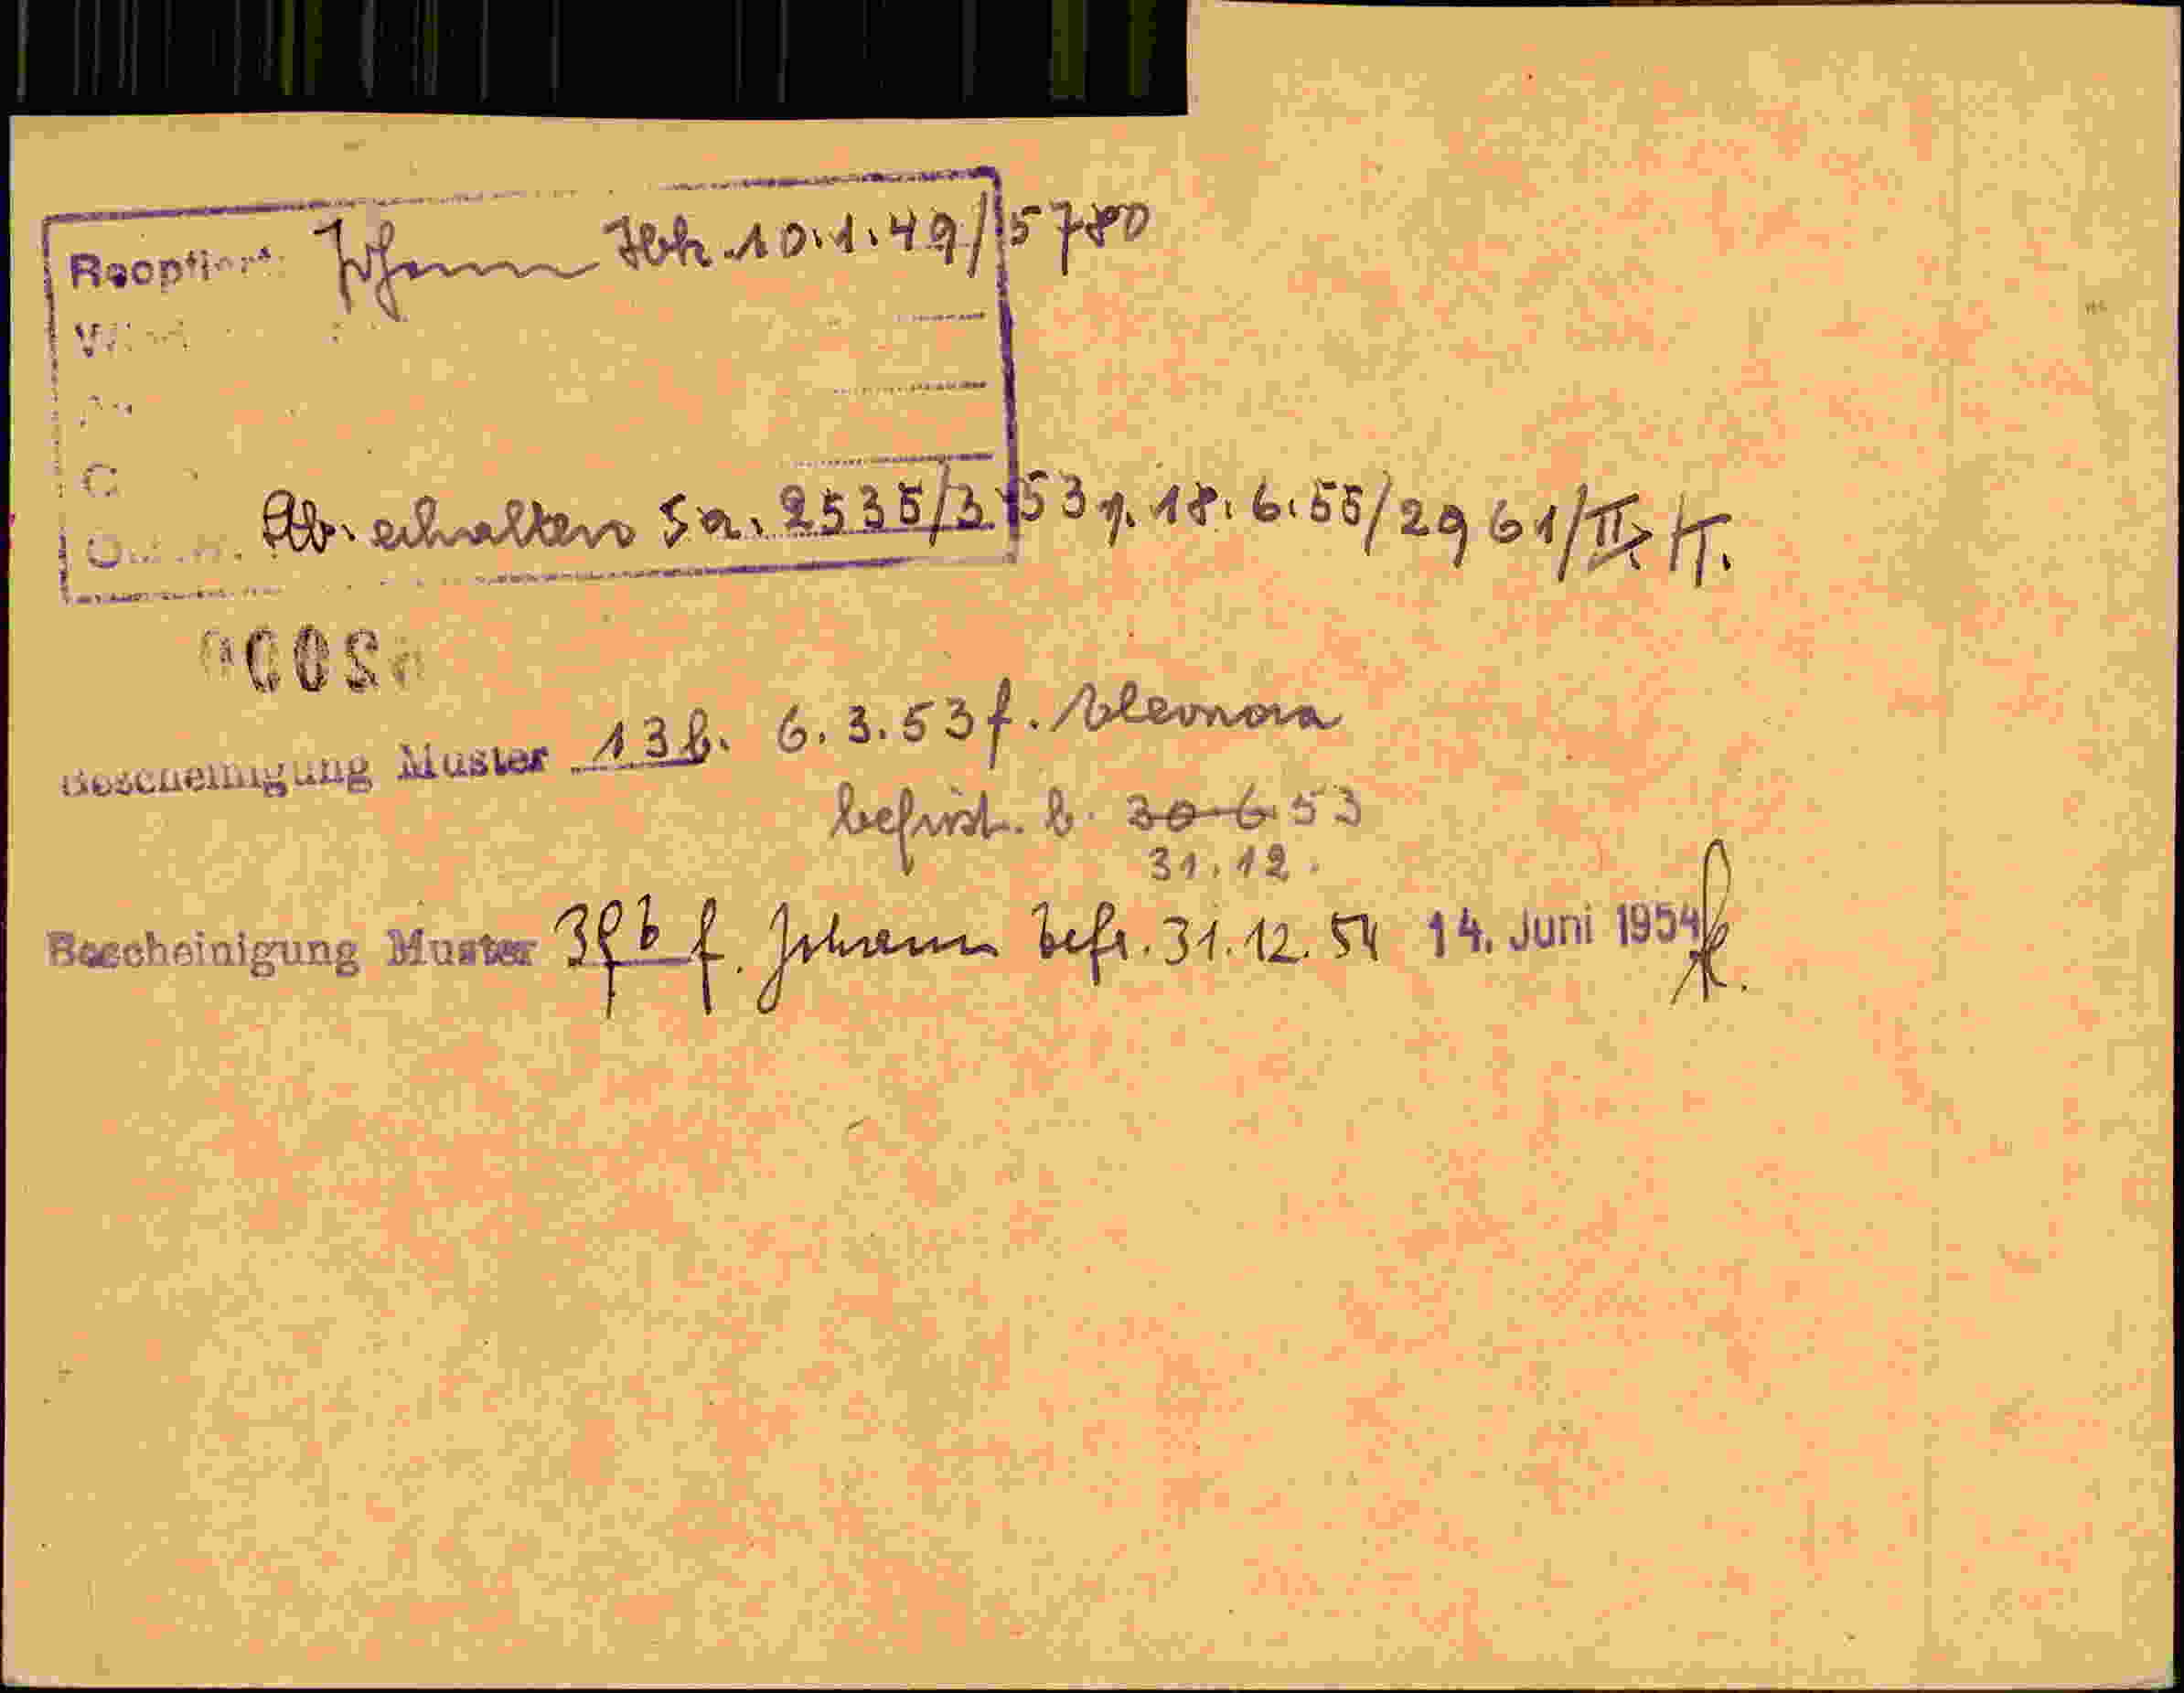 Reoptiert: Johann Ibk. 10.1.49/5780
Ab. erhalten Sa. 2535/3 53 v. 18.6.55/2961/II
Bescheinigung Muster 13b. 6.3.53 f. Eleonora
befrist. b. 30 6 53
31.12.
Bescheinigung Muster b f. Johann befr. 31.12.54 14. Juni 1954